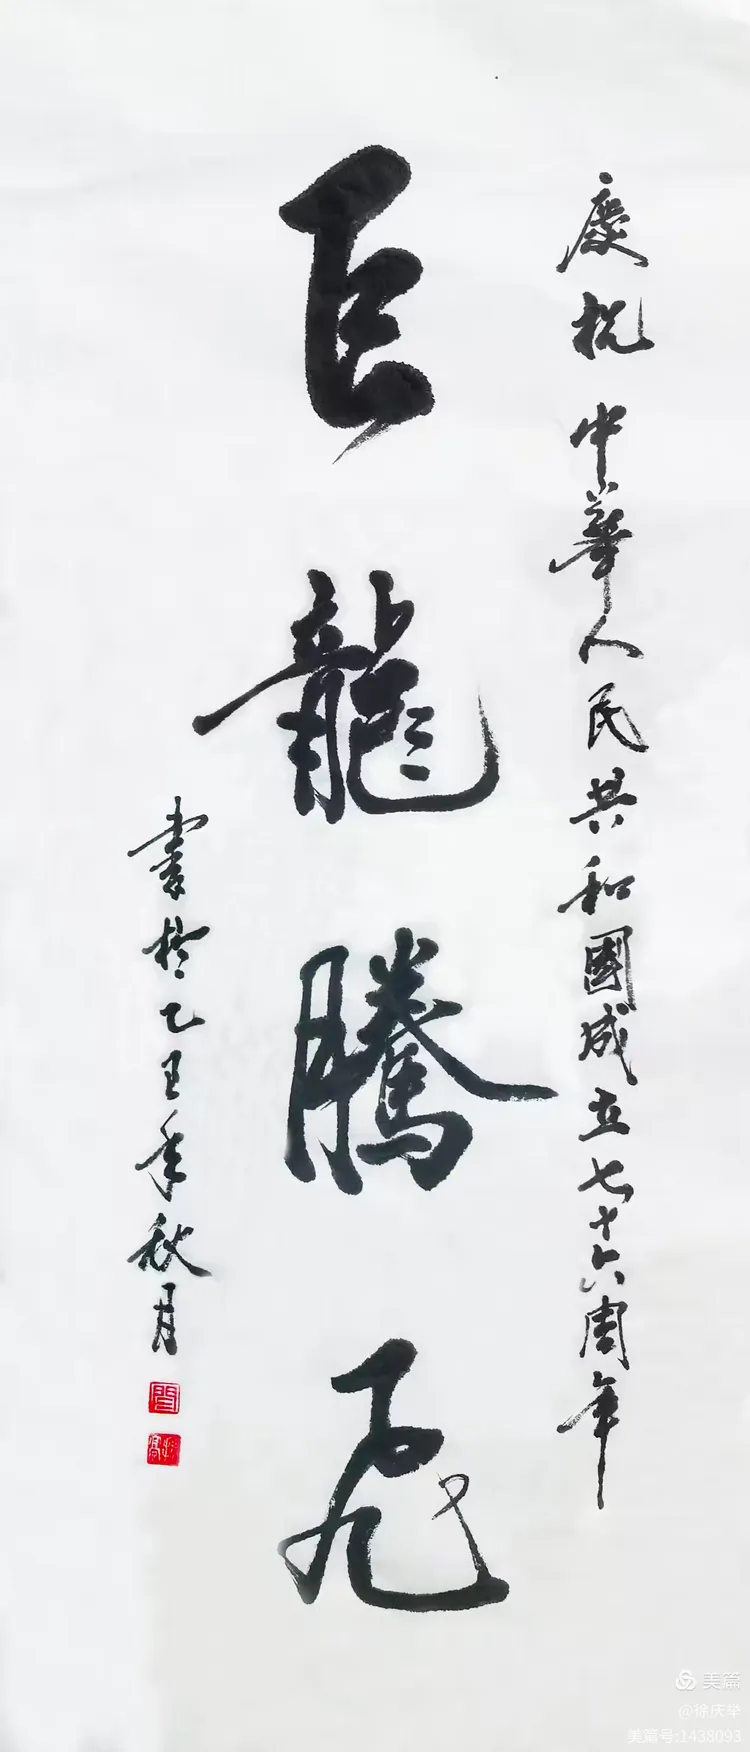 慶祝中華人民共和國成立七十六周年
巨龍騰飛
書於乙巳年秋月
美篇
@徐庆举
美篇号:1438093